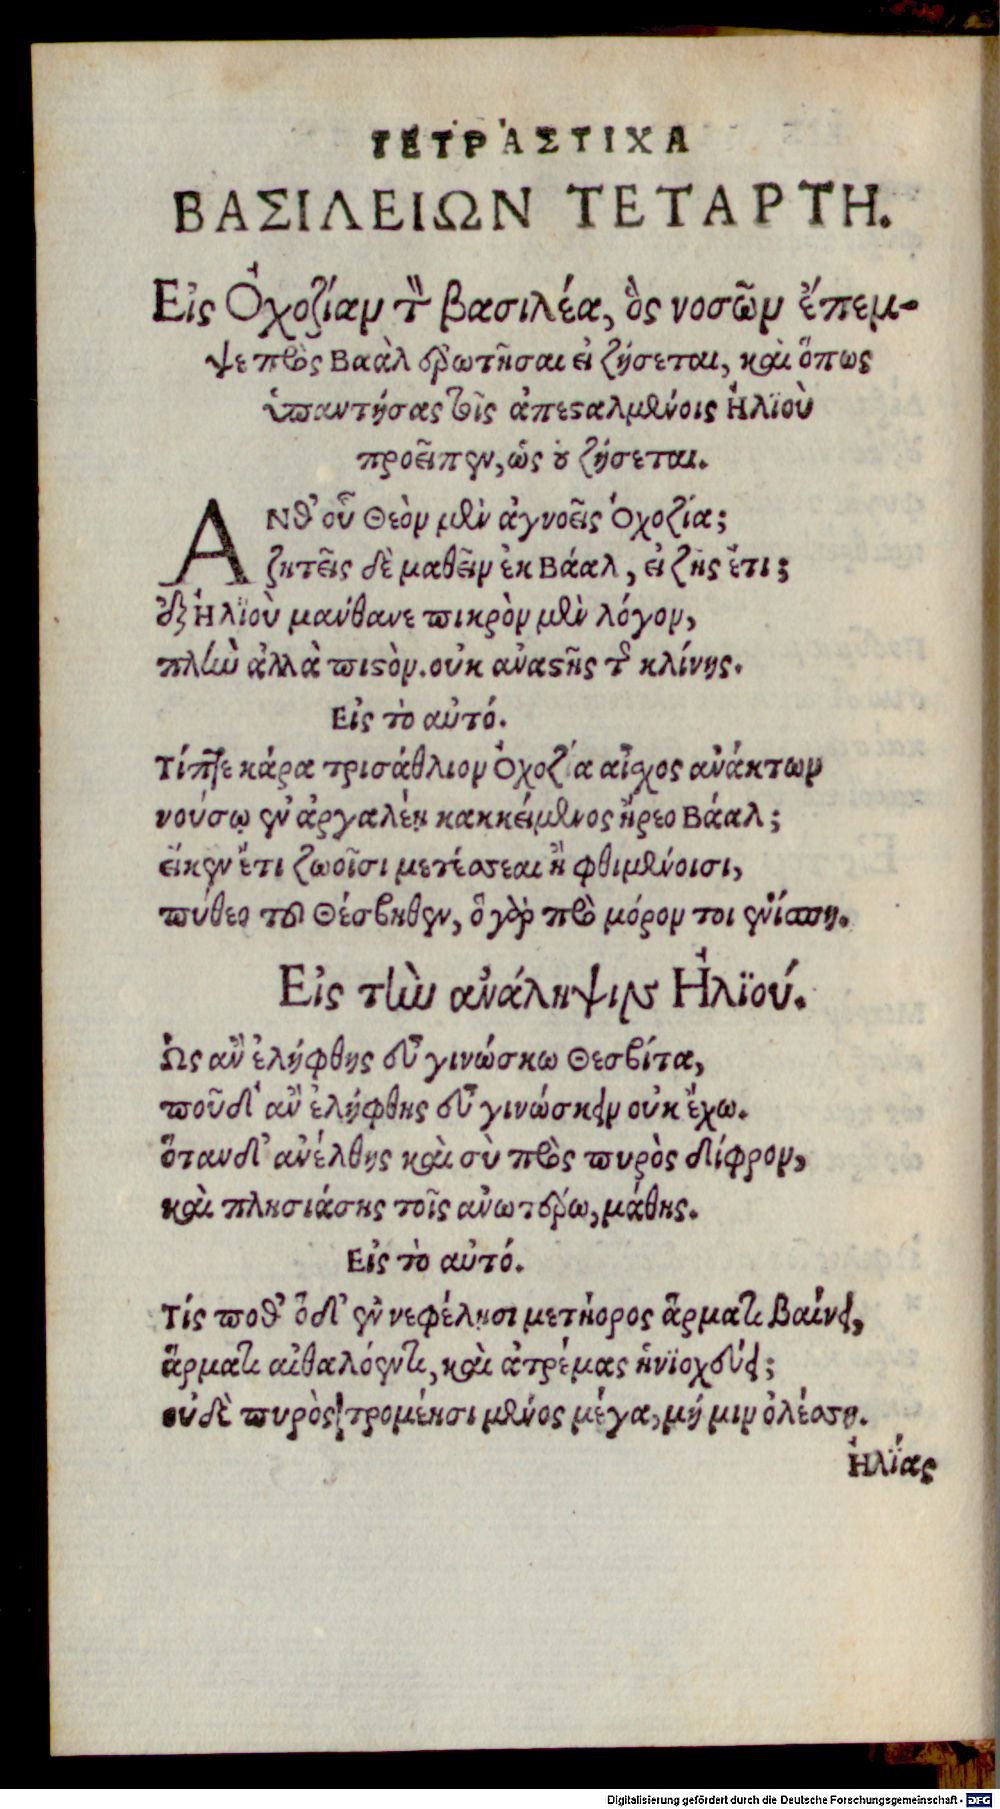 ΤΕΤΡΆΣΤΙΧΑ
ΒΑΣΙΛΕΙΩΝ ΤΕΤΑΡΤΗ.
Εἰς Ὀχοζίαν τὸν βασιλέα, ὃς νοσῶν ἔπεμ-
ψε πρὸς Βαὰλ ἐρωτῆσαι εἰ ζήσεται, καὶ ὅπως
ὑπαντήσας τοῖς ἀπεσταλμένοις Ἠλϊοὺ
προεῖπεν, ὡς οὐ ζήσεται.
ΑΝθ' οὗ Θεὸν μὲν ἀγνοεῖς Ὀχοζία;
ζητεῖς δὲ μαθεῖν ἐκ Βάαλ, εἰ ζῇς ἔτι;
ἐξ Ἠλϊοὺ μάνθανε πικρὸν μὲν λόγον,
πλὴν ἀλλὰ πιστὸν. οὐκ ἀναστῇς τῆς κλίνης.
Εἰς τὸ αὐτό.
Τίπτε κάρα τρισάθλιον Ὀχοζία αἶσχος ἀνάκτων
νούσῳ ἐν ἀργαλέῃ κακκείμενος ἤρεο Βάαλ;
εἴκεν ἔτι ζωοῖσι μετέσσεαι ἢ φθιμένοισι,
πύθεο τοῦ Θέσβηθεν, ὃ γὰρ πρὸ μόρον τοι ἐνίσπῃ.
Εἰς τὴν ἀνάληψιν Ἠλϊού.
Ὡς ἂν ἐλήφθης εὖ γινώσκω Θεσβίτα,
ποῦ δ' ἂν ἐλήφθης εὖ γινώσκειν οὐκ ἔχω.
ὅταν δ' ἀνέλθῃς καὶ σὺ πρὸς πυρὸς δίφρον,
καὶ πλησιάσῃς τοῖς ἀνωτέρω, μάθῃς.
Εἰς τὸ αὐτό.
Τίς ποθ' ὅδ' ἐν νεφέλῃσι μετήορος ἅρματι βαίνει,
ἅρματι αἰθαλόεντι, καὶ ἀτρέμας ἡνϊοχεύει;
οὐδὲ πυρὸς τρομέησι μένος μέγα, μή μιν ὀλέσσῃ.
Ἠλΐας
Digitalisierung gefördert durch die Deutsche Forschungsgemeinschaft - DFG